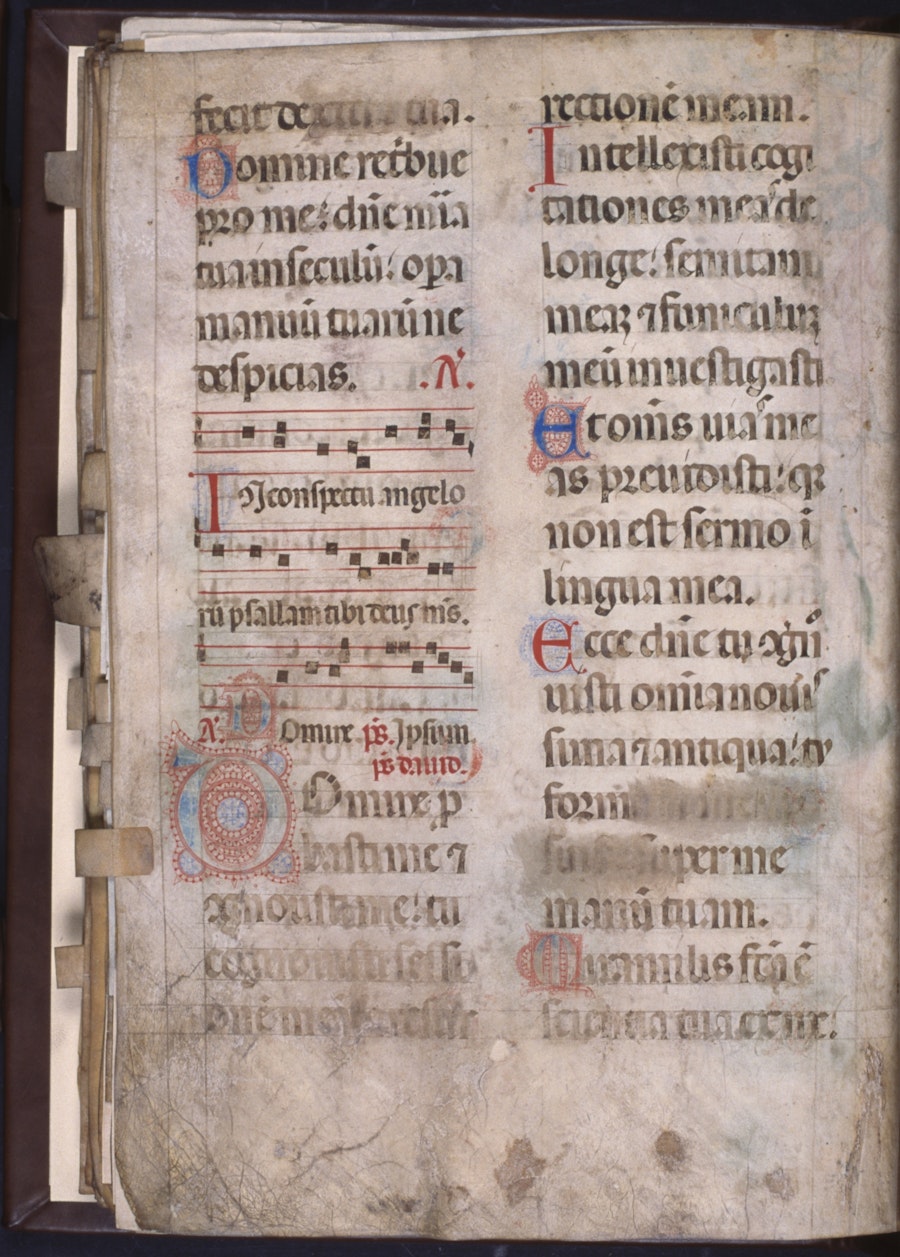 fecit dextera tua.
Domine retꝛibue
pro me: dn̄e mīa
tua in seculū: opa
manuū tuarū ne
despicias. .A.
In conspectu angelo
rū psallam tibi deus ms̄.
A. Domine ps. Ipsum
ps dauid.
Domine p
basti me ⁊
cognouisti me: tu
cognouisti sessio
nē meā
rectionē meam.
Intellexisti cogi
tationes meas de
longe: semitam
meaꝫ ⁊ funiculuꝫ
meū inuestigasti
Et om̄s uias me
as preuidisti: qꝛ
non est sermo ī
lingua mea.
Ecce dn̄e tu cogn
uisti omnia nouis
sima ⁊ antiqua: tu
form
super me
manū tuam.
Mirabilis fcā ē
scientia tua ex me: